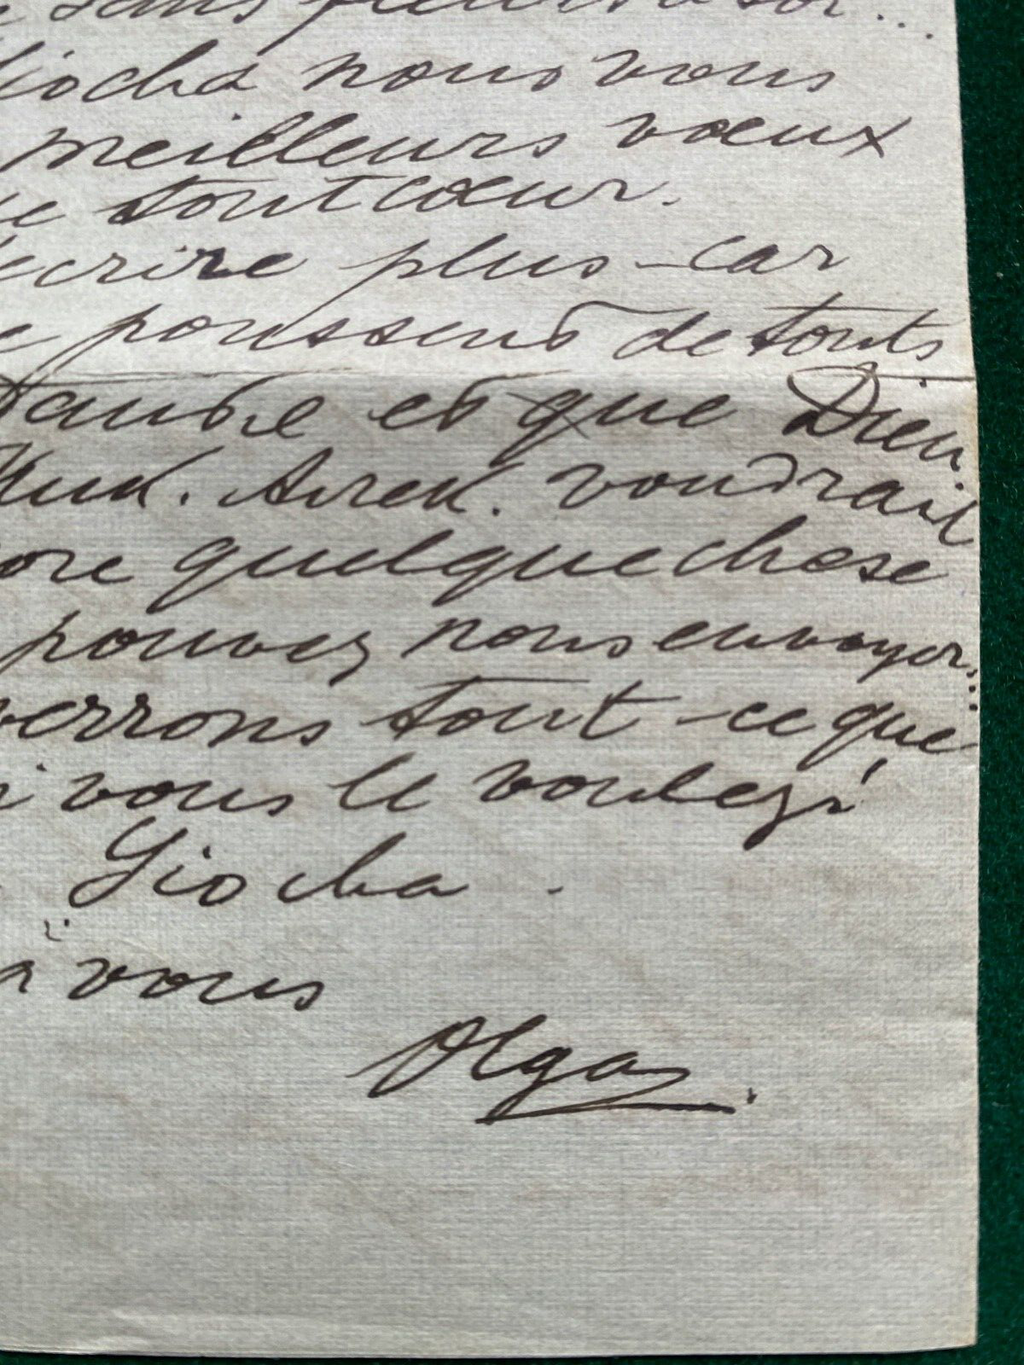 sans
iocha nous vous
meilleurs vœux
de tout cœur.
écrire plus - car
poussent de touts
Tante et que Dieu
voudrait
ore quelque chose
pouvez nous envoyer...
verrons tout ce que
i vous le voulez!
Liocha.
à vous
Olga.